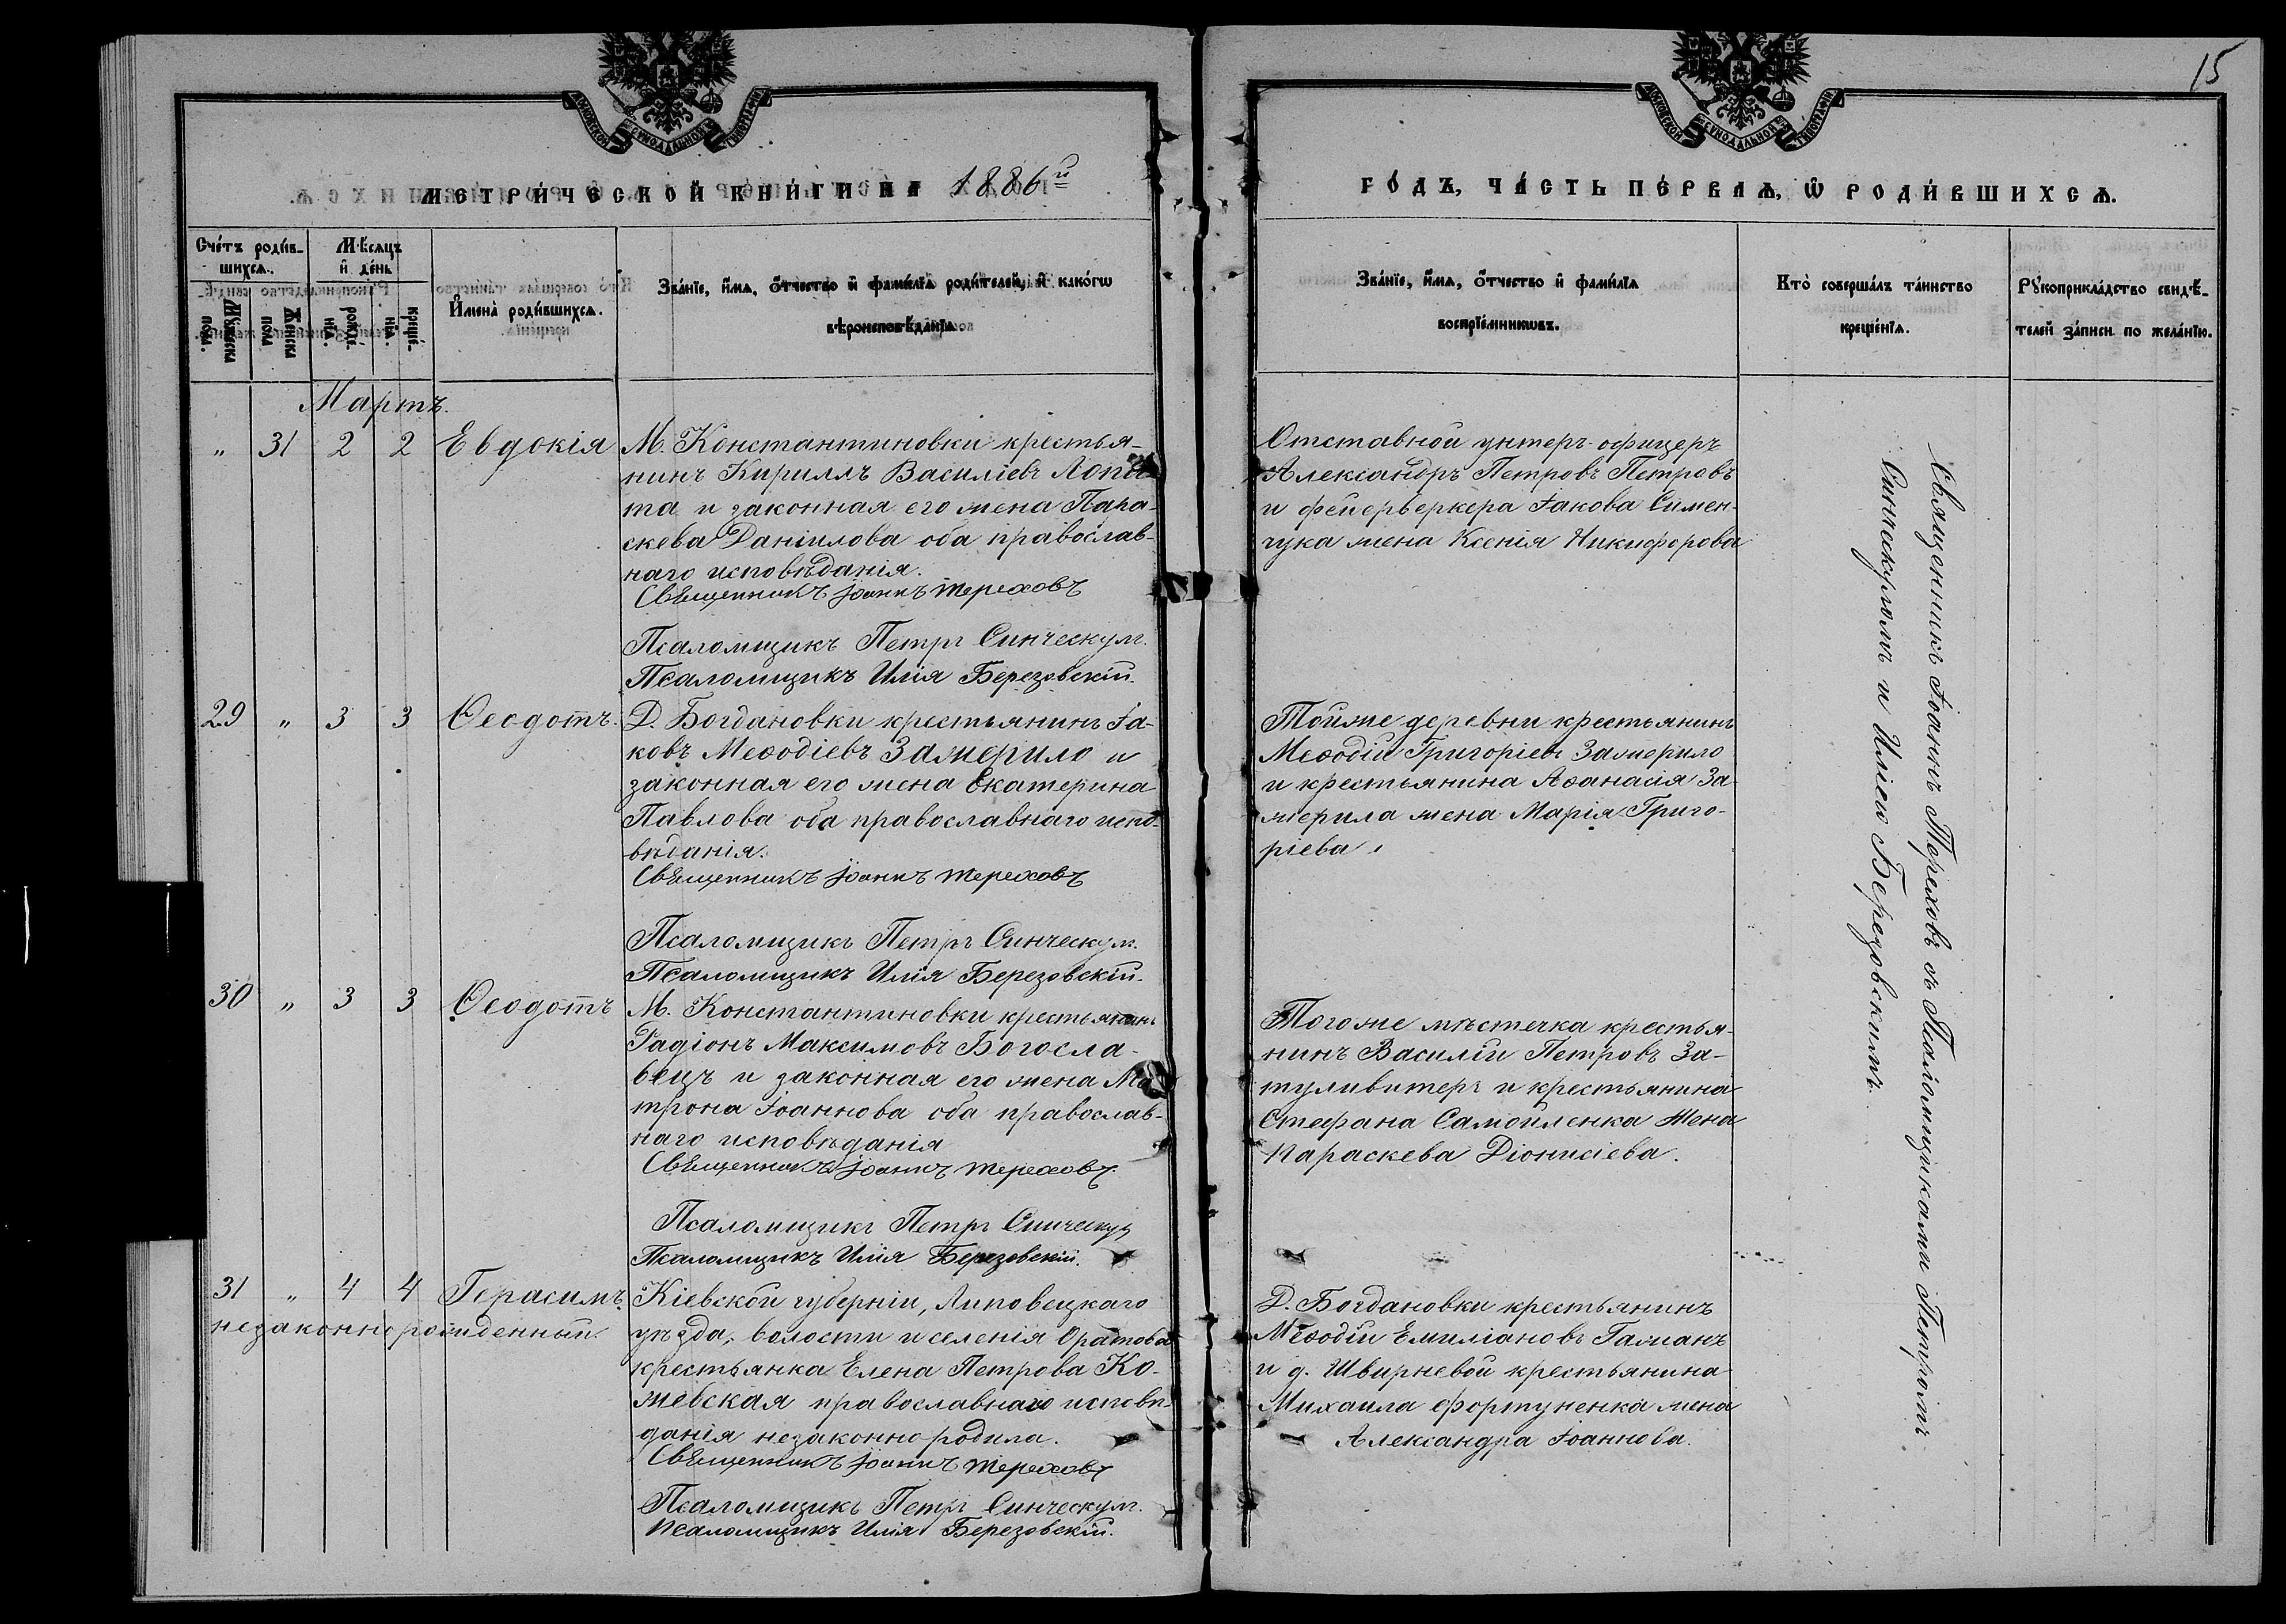 15
МОСКОВСКОЙ СѴНОДАЛЬНОЙ ТИПОГРАФІИ
МОСКОВСКОЙ СѴНОДАЛЬНОЙ ТИПОГРАФІИ
МЕТРИ́ЧЕСКОЙ КНИ́ГИ НА 1886й
ГО́ДЪ, ЧА́СТЬ ПЕ́РВАѦ, Ѡ РОДИ́ВШИХСѦ.
Сче́тъ роди́в-
шихсѧ.
Мѣ́сѧцъ
и де́нь
Му́жеска
пола.
Же́нска
пола
рожде́-
нїѧ.
креще́-
нїѧ.
Имена̀ роди́вшихсѧ.
Зва́нїе, и́мѧ, о́тчество и фами́лїѧ роди́телей, и како́гѡ
вѣроисповѣ́данїѧ.
Зва́нїе, и́мѧ, о́тчество и фами́лїѧ
воспрїе́мникѡвъ.
Кто̀ соверша́лъ та́инство
креще́нїѧ.
Рꙋкоприкла́дство свидѣ́-
телей за́писи по жела́нїю.
Мартъ.
„ 31 2 2 Евдокія
М. Константиновки крестья-
нинъ Кириллъ Василіевъ Лопа-
та и законная его жена Пара-
скева Даніилова оба православ-
наго исповѣданія.
Священникъ Іоаннъ Тереховъ
Псаломщикъ Петръ Синческулъ.
Псаломщикъ Илія Березовскій.
Отставной унтеръ-офицеръ
Александръ Петровъ Петровъ
и фейерверкера Іакова Симен-
чука жена Ксенія Никифорова
29 „ 3 3 Ѳеодотъ.
Д. Богдановки крестьянинъ Іа-
ковъ Меѳодіевъ Зажерило и
законная его жена Екатерина
Павлова оба православнаго испо-
вѣданія.
Священникъ Іоаннъ Тереховъ
Псаломщикъ Петръ Синческулъ.
Псаломщикъ Илія Березовскій.
Тойже деревни крестьянинъ
Меѳодій Григоріевъ Зажерило
и крестьянина Аѳанасія За-
жерила жена Марія Григо-
ріева
30 „ 3 3 Ѳеодотъ
М. Константиновки крестьянинъ
Радіонъ Максимовъ Богосла-
вецъ и законная его жена Ма-
трона Іоаннова оба православ-
наго исповѣданія
Священникъ Іоаннъ Тереховъ
Псаломщикъ Петръ Синческулъ
Псаломщикъ Илія Березовскій.
Тогоже мѣстечка крестья-
нинъ Василій Петровъ За-
туливитеръ и крестьянина
Стефана Самойленка жена
Параскева Діонисіева.
31 „ 4 4 Герасимъ
незаконнорожденный.
Кіевской губерніи, Липовецкаго
уѣзда, волости и селенія Оратова
крестьянка Елена Петрова Ко-
жевская православнаго исповѣ-
данія незаконно родила.
Священникъ Іоаннъ Тереховъ
Псаломщикъ Петръ Синческулъ.
Псаломщикъ Илія Березовскій.
Д. Богдановки крестьянинъ
Меѳодій Емиліановъ Гажанъ
и д. Швирневой крестьянина
Михаила Фортуненка жена
Александра Іоаннова.
Священникъ Іоаннъ Тереховъ съ Псаломщиками Петромъ
Синческуломъ и Иліею Березовскимъ.